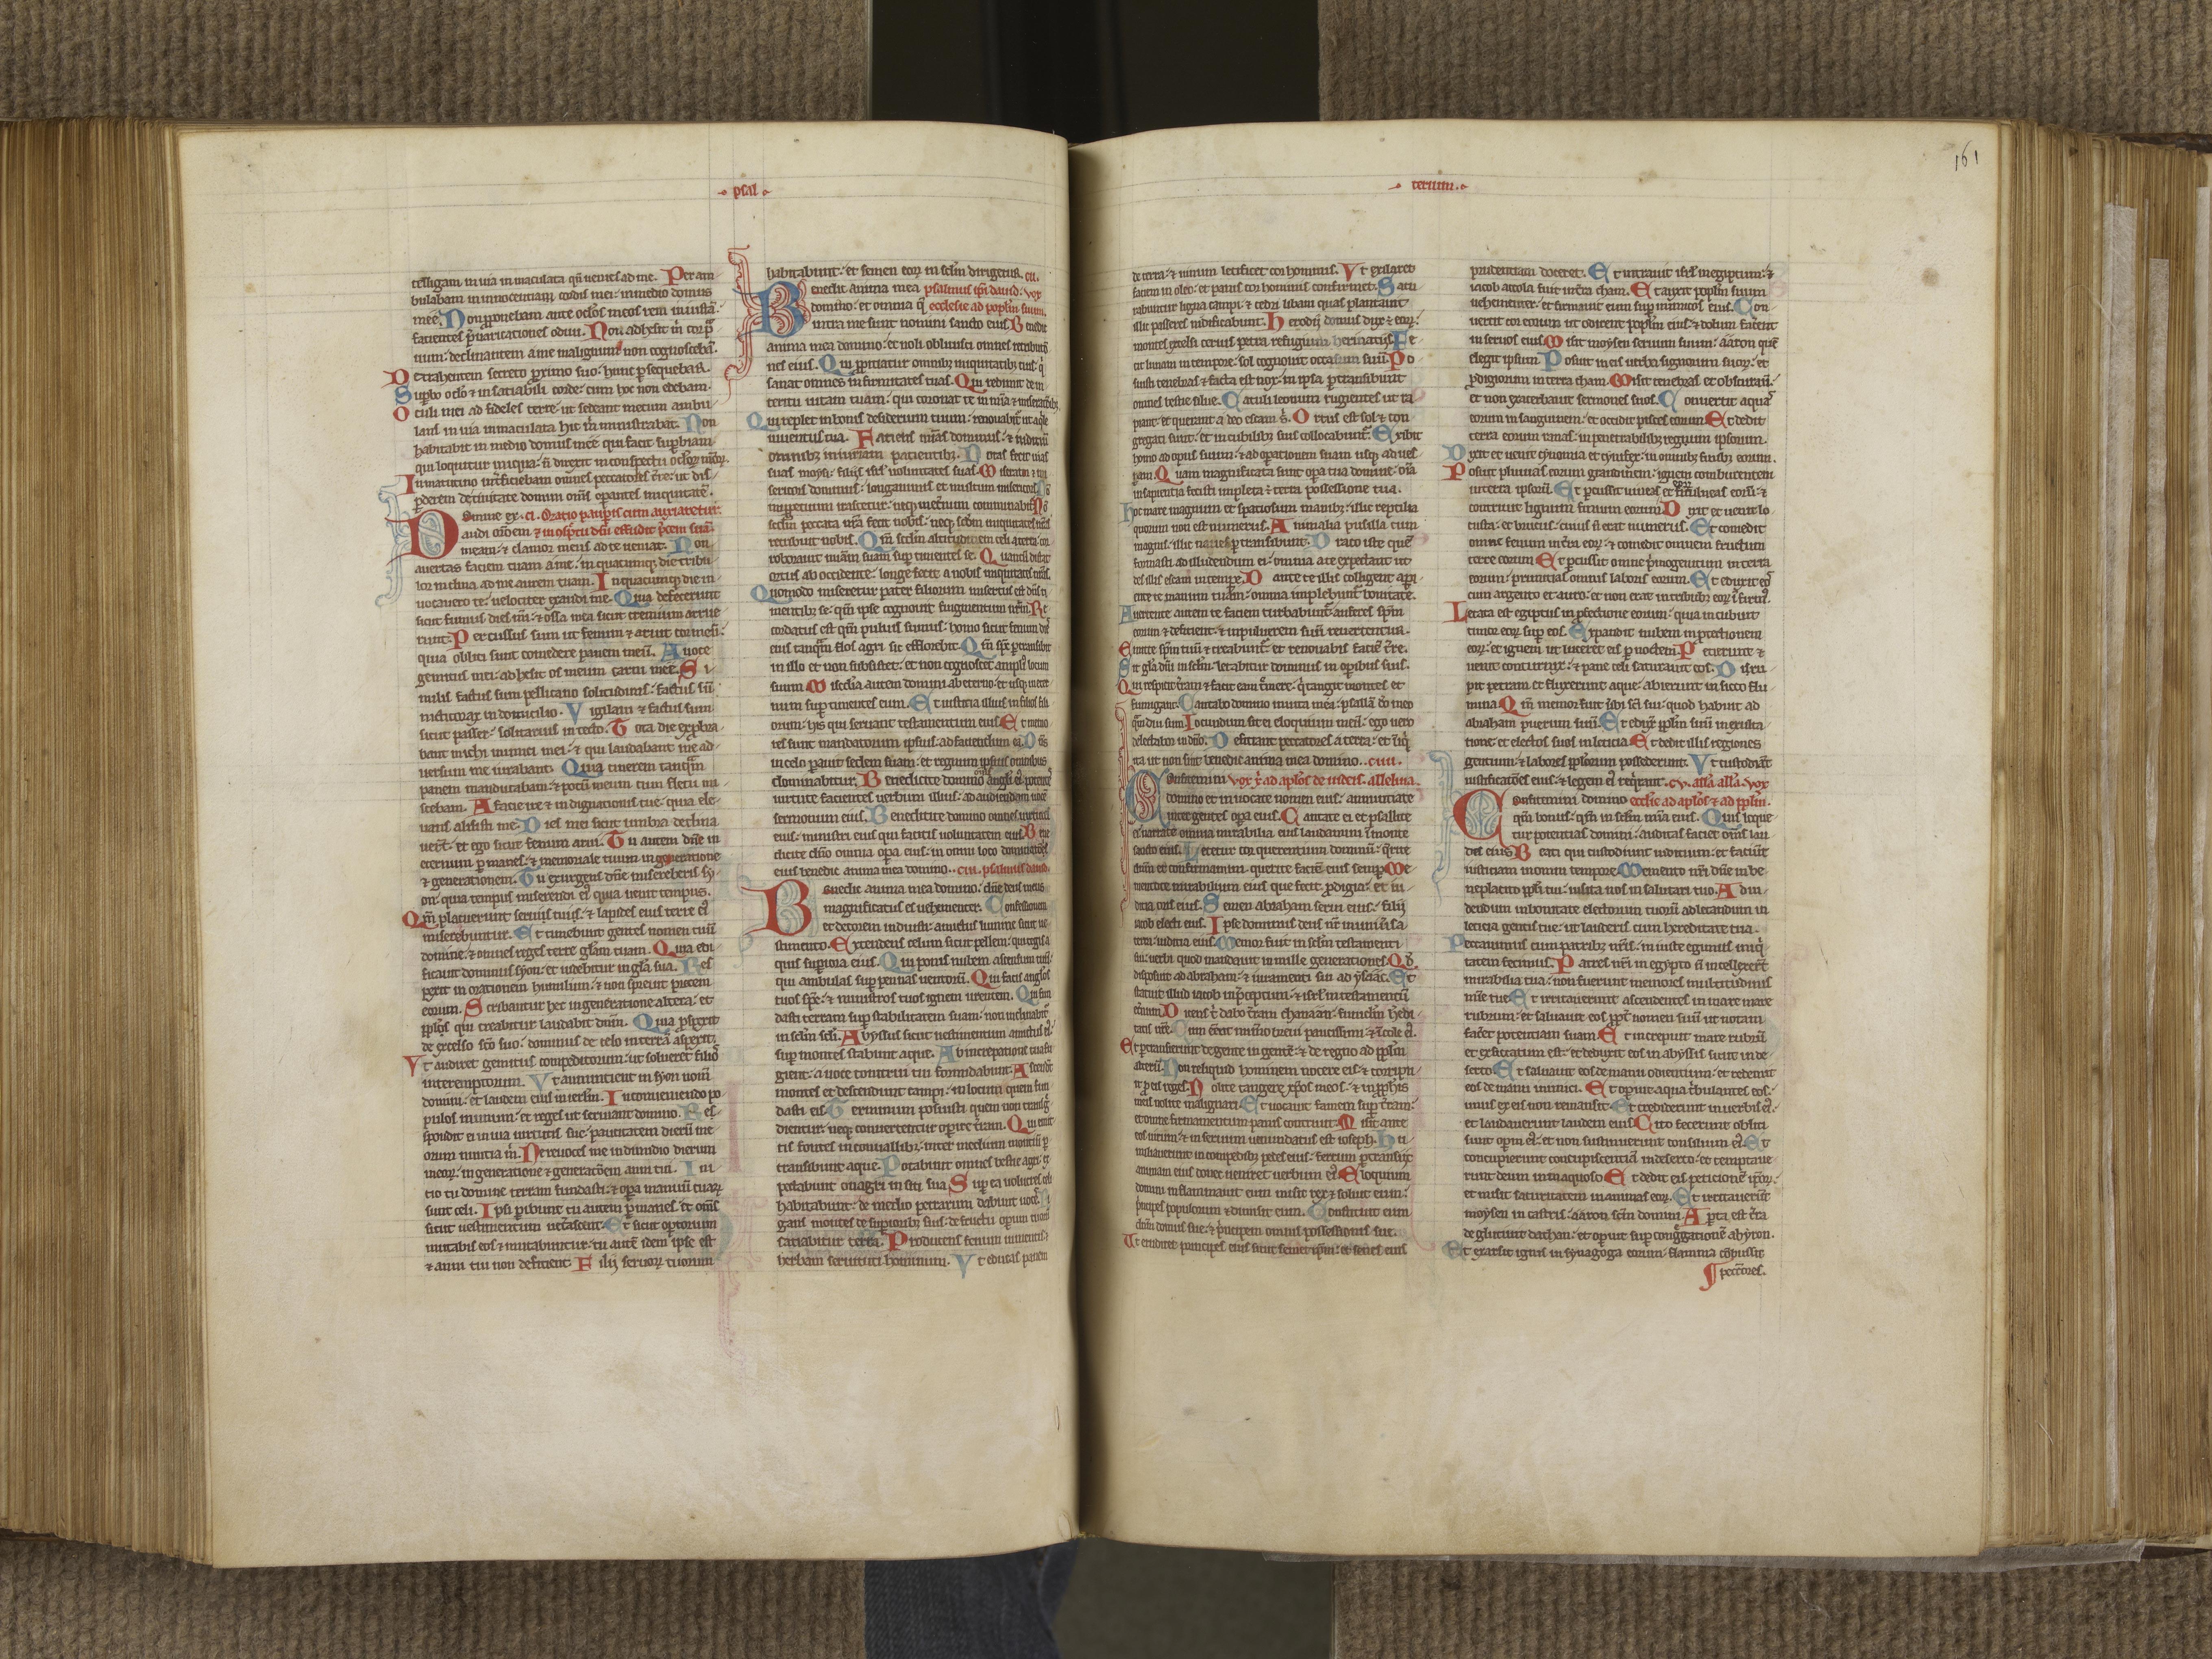 psal
telligam in uia inmaculata qn̄ uenies ad me. Peram
bulabam in innocentia cordis mei: in medio domus
meę. Non ꝓponebam ante oclōs meos rem iniustā:
facientes p̄uaricationes odiui. Non adhesit m̄ cor p̄
uum: declinantem a me malignum non cognoscebā.
Detrahentem secreto ꝓximo suo: hunc ꝑsequebar.
Supbo oclō & insatiabili corde: cum hoc non edebam.
Oculi mei ad fideles terre: ut sedeant mecum ambu
lans in uia inmaculata hic m̄ ministrabat. Non
habitabit in medio domus meę qui facit supbiam:
qui loquitur iniqua: n̄ direxit in conspectu oclōꝝ meoꝝ.
In matutino int̄ficiebam omnes peccatores t̄re: ut dis
ꝑderem de ciuitate domini om̄s oꝑantes iniquitatē.
Domine ex .ci. Oratio paupis cum anxiaretur
audi or̄onem & in cōspectu dn̄i effudit p̄cem suā.
meam: & clamor meus ad te ueniat. Non
auertas faciem tuam a me: in quacumq; die tribu
lor inclina ad me aurem tuam. In quacumq; die in
uocauero te: uelociter exaudi me. Quia defecerunt
sicut fumus dies mei: & ossa mea sicut cremium arue
runt. Percussus sum ut fenum & aruit cor meū:
quia oblitus sum comedere panem meū. A uoce
gemitus mei: adhesit os meum carni meę. Si
milis factus sum pellicano solitudinis: factus sū
nicticorax in domicilio. Vigilaui & factus sum
sicut passer: solitarius in tecto. Tota die exꝓbra
bant michi inimici mei: & qui laudabant me ad
uersum me iurabant. Quia cinerem tanquā
panem manducabam: & potū meum cum fletu mi
scebam. A facie ire & indignationis tue: quia ele
uans alisisti me. Dies mei sicut umbra declina
uer̄t: et ego sicut fenum arui. Tu autem dn̄e in
eternum ꝑmanes: & memoriale tuum in generatione
& generationem. Tu exurgens dn̄e misereberis sy
on: quia tempus miserendi ei quia uenit tempus.
Qm̄ placuerunt seruis tuis: & lapides eius terre ei
miserebuntur. Et timebunt gentes nomen tuū
domine: & omnes reges terre gl̄am tuam. Quia edi
ficauit dominus syon: et uidebitur in gl̄a sua. Res
pexit in orationem humilium: & non spreuit precem
eorum. Scribantur hec in generatione altera: et
ppl̄s qui creabitur laudabit dnm̄. Quia ꝓspexit
de excelso scō suo: dominus de celo in terrā aspexit.
Vt audiret gemitus compeditorum: ut solueret filiō
interemptorum. Vt annuntient in syon nomē
domini: et laudem eius in ierl̄m. In conueniendo po
pulos in unum: et reges ut seruiant domino. Res
pondit ei in uia uirtutis sue: paucitatem dierū me
orum nuntia m̄. Ne reuoces me in dimidio dierum
meoꝝ: in generatione & generationē anni tui. Ini
cio tu domine terram fundasti: & opa manuū tuaꝝ
sunt celi. Ipsi ꝑibunt tu autem ꝑmanes: et om̄s
sicut uestimentum uet̄ascent. Et sicut optorium
mutabis eos & mutabuntur: tu autē idem ipse est
& anni tui non deficient. Filij seruoꝝ tuorum
habitabunt: et semen eoꝝ in sclm̄ dirigetur. cii.
Benedic anima mea psalmus ip̄i dauid. vox
domino: et omnia q̄ ecclesie ad poplm̄ suum.
intra me sunt nomini sancto eius. Benedic
anima mea domino: et noli obliuisci omnes retributiō
nes eius. Qui ꝓpitiatur omnibus iniquitatibꝫ tuis: q̄
sanat omnes infirmitates tuas. Qui redimit de in
teritu uitam tuam: qui coronat te in mia & miserationibꝫ.
Qui replet in bonis desiderium tuum: renouabit̄ ut aq̄le
iuuentus tua. Faciens mias dominus: & iudiciū
omnibꝫ iniuriam patientibꝫ. Notas fecit uias
suas moysi: filijs isrl̄ uoluntates suas. Miserator & mi
sericors dominus: longanimis et multum misericors. Nō
in ꝑpetuum irascetur: neq; in et̄num comminabit̄. Nō
sclm̄ peccata nr̄a fecit nobis: neq; sclm̄ iniquitates nr̄as
retribuit nobis. Qm̄ sclm̄ altitudinem celi a terra: cor
roborauit miam̄ suam sup timentes se. Quantū distat
ortus ab occidente: longe fecit a nobis iniquitates nr̄as.
Quomodo miseretur pater filiorum misertus est dn̄s ti
mentibꝫ se: qm̄ ipse cognouit figmentum nr̄m. Re
cordatus est qm̄ puluis sumus: homo sicut fenum dies
eius tanquā flos agri sic efflorebit. Qm̄ spc̄ ꝑtransibit
in illo et non subsistet: et non cognoscet amplius locum
suum. Misc̄dia autem domini ab eterno: et usq; in eter
num sup timentes eum. Et iusticia illius in filios fili
orum: his qui seruant testamentum eius. Et memo
res sunt mandatorum ipsius: ad faciendum ea. Dn̄s
in celo parauit sedem suam: et regnum ipsius omnibus
dominabitur. Benedicite domino om̄s angli ei potentes
uirtute facientes uerbum illius: ad audiendam uocē
sermonum eius. Benedicite domino omnes uirtutes
eius: ministri eius qui facitis uoluntatem eius. Bene
dicite dn̄o omnia opa eius: in omni loco dominatiōis
eius benedic anima mea domino.. ciii. psalmus dauid.
Benedic anima mea domino: dn̄e deus meus
magnificatus es uehementer. Confessionem
et decorem induisti: amictus lumine sicut ue
stimento. Extendens celum sicut pellem: qui tegis a
quis supiora eius. Qui ponis nubem ascensum tuū:
qui ambulas sup pennas uentorū. Qui facis angl̄os
tuos spc̄: & ministros tuos ignem urentem. Qui fun
dasti terram sup stabilitatem suam: non inclinabit̄
in sclm̄ scl̄i. Abyssus sicut uestimentum amictus ei:
sup montes stabunt aque. Ab increpatione tua fu
gient: a uoce tonitrui tui formidabunt. Ascendūt
montes et descendunt campi: in locum quem fun
dasti eis. Terminum posuisti quem non transḡ
dientur: neq; conuertentur opire t̄ram. Qui emit
tis fontes in conuallibꝫ: inter medium montiū ꝑ
transibunt aque. Potabunt omnes bestie agri: ex
pectabunt onagri in siti sua. Sup ea uolucres celi
habitabunt: de medio petrarum dabunt uocē. Ri
gans montes de supioribꝫ suis: de fructu opum tuorū
satiabitur terra. Producens fenum iumentis:
herbam seruituti hominum. Vt educas panem
terium. 161
de terra: & uinum letificet cor hominis. Vt exilaret
faciem in oleo: et panis cor hominis confirmet. Satu
rabuntur ligna campi: & cedri libani quas plantauit
illic passeres nidificabunt. Herodij domus dux ē eoꝝ:
montes excelsi ceruis petra refugium herinatiis. Fe
cit lunam in tempore: sol cognouit occasum suū. Po
suisti tenebras & facta est nox: in ipsa ꝑtransibunt
omnes bestie silue. Catuli leonum rugientes ut ra
piant: et querant a deo escam s̄. Ortus est sol & con
gregati sunt: et in cubilibꝫ suis collocabunt̄. Exibit
homo ad opus suum: & ad operationem suam usq; ad ues
pam. Quam magnificata sunt opa tua domine: oīa
in sapientia fecisti impleta ē terra possessione tua.
Hoc mare magnum et spaciosum manibꝫ: illic reptilia
quorum non est numerus. Animalia pusilla cum
magnis: illic naues ꝑtransibunt. Draco iste quē
formasti ad illudendum ei: omnia a te expectant ut
des illis escam in tempe. Dante te illis colligent: api
ente te manum tuām omnia implebunt̄ bonitate.
Auertente autem te faciem turbabunt̄: auferes spm̄
eorum & deficient: & in puluerem suū reuertentur.
Emitte spm̄ tuū & creabunt̄: et renouabis faciē t̄re.
Sit gla dn̄i in sclm̄: letabitur dominus in opibus suis.
Qui respicit t̄ram & facit eam t̄mere: q̄ tangit montes et
fumigant. Cantabo domino in uita mea: psallā deo meo
q̄m diu sum. Iocundum sit ei eloquium meū: ego uero
delectabor in dn̄o. Deficiant peccatores a terra: et iniq̄
ita ut non sint benedic anima mea domino. .ciiii.
Confitemini vox x̄ ad aplōs de iudeis. alleluia.
domino et inuocate nomen eius: annuntiate
inter gentes opa eius. Cantate ei et psallite
ei: narrate omnia mirabilia eius laudamini ī nomine
sancto eius. Letetur cor querentium dominū: q̄rite
dnm̄ et confirmamini: querite faciē eius semp. Me
mentote mirabilium eius que fecit: ꝓdigia: et iu
dicia oris eius. Semen abraham serui eius: filij
iacob electi eius. Ipse dominus deus nr̄: in uniūsa
terra iudicia eius. Memor fuit in sclm̄ testamenti
sui: uerbi quod mandauit in mille generationes. Qd̄
disposuit ad abraham: & iuramenti sui ad ysaac. Et
statuit illud iacob in p̄ceptum: & isrl̄ in testamentū
et̄num. Dicens t̄ dabo t̄ram chanaan: funiclm̄ heredi
tatis ur̄e. Cum eēnt nūmo breui paucissimi: & īcole ei.
Et ꝑtransierunt de gente in gentē: & de regno ad pplm̄
alterū. Non reliquid hominem nocere eis: & corripu
it ꝓ eis reges. Nolite tangere xp̄os meos: & in ꝓphīs
meis nolite malignari. Et uocauit famem sup t̄ram:
et omne firmamentum panis contriuit. Misit ante
eos uirum: & in seruum uenundatus est ioseph. Hu
miliauerunt in compedibꝫ pedes eius: ferrum ꝑtransijt
animam eius donec ueniret uerbum ei. Eloquium
domini inflammauit eum: misit rex & soluit eum:
princeps populorum & dimisit eum. Constituit eum
dnm̄ domus sue: & principem omnis possessionis sue.
Vt erudiret principes eius sicut semet ipm̄: et senes eius
prudentiam doceret. Et intrauit isrl̄ in egiptum: &
iacob accola fuit in t̄ra cham. Et auxit poplm̄ suum
uehementer: et firmauit eum sup inimicos eius. Con
uertit cor eorum ut odirent poplm̄ eius: & dolum facerent
in seruos eius. Misit moysen seruum suum: aaron quē
elegit ipsum. Posuit in eis uerba signorum suoꝝ: et
ꝓdigiorum in terra cham. Misit tenebras et obscurauit:
et non exacerbauit sermones suos. Conuertit aquas
eorum in sanguinem: et occidit pisces eorum. Et dedit
terra eorum ranas: in penetrabilibꝫ regum ipsorum.
Dixit et uenit cynomia et cynifex: in omnibꝫ finibꝫ eorum.
Posuit pluuias eorum grandinem: ignem comburentem
in terra ipsorū. Et percussit uineas eoꝝ et ficulneas eorū: &
contriuit lignum finium eorum. Dixit et uenit lo
custa: et brucus: cuius n̄ erat numerus. Et comedit
omne fenum in t̄ra eoꝝ: & comedit omnem fructum
terre eorum. Et ꝑcussit omne p̄mogenitum in terra
eorum: primitias omnis laboris eorum. Et eduxit eos
cum argento et auro: et non erat in tribubꝫ eoꝝ īfirmus.
Letata est egiptus in ꝓfectione eorum: quia incubuit
timor eoꝝ sup eos. Expandit nubem in ꝓtectionem
eoꝝ: et ignem ut luceret eis ꝑ noctem. Petierunt &
uenit coturnix: & pane celi saturauit eos. Disru
pit petram et fluxerunt aque: abierunt in sicco flu
mina. Qm̄ memor fuit ūbi sc̄i sui: quod habuit ad
abraham puerum suū. Et eduxit pplm̄ suū in exulta
tione: et electos suos in leticia. Et dedit illis regiones
gentium: & labores pplorum possederunt. Vt custodiant
iustificatiōes eius: & legem ei req̄rant. .cv. all̄a. all̄a. vox
Confitemini domino eccl̄ie ad aplōs & ad pplm̄.
qm̄ bonus: qm̄ in sclm̄ mīa eius. Quis loque
tur potentias domini: auditas faciet om̄s lau
des eius. Beati qui custodiunt iudicium: et faciūt
iusticiam in omni tempore. Memento nr̄i dn̄e in be
neplacito ppl̄i tui: uisita nos in salutari tuo. Ad ui
dendum in bonitate electorum tuorū: ad letandum in
leticia gentis tue: ut lauderis cum hereditate tua.
Peccauimus cum patribꝫ nr̄is: iniuste egimus iniq̄
tatem fecimus. Patres nr̄i in egypto n̄ intellexer̄t
mirabilia tua: non fuerunt memores multitudinis
mīe tue. Et irritauerunt ascendentes in mare mare
rubrum: et saluauit eos ppt̄ nomen suū ut notam
facet̄ potentiam suam. Et increpuit mare rubrū
et exsiccatum est: et deduxit eos in abyssis sicut in de
serto. Et saluauit eos de manu odientium: et redemit
eos de manu inimici. Et opuit aqua t̄bulantes eos:
unus ex eis non remansit. Et crediderunt in uerbis ei:
et laudauerunt laudem eius. Cito fecerunt obliti
sunt opm̄ ei: et non sustinuerunt consilium ei. Et
concupierunt concupiscentiā in deserto: et temptaue
runt deum in inaquoso. Et dedit eis petitionē ip̄oꝝ:
et misit saturitatem in animas eoꝝ. Et irritauerūt
moysen in castris: aaron scm̄ domini. Aperta est t̄ra
& deglutiuit dathan: et opuit sup cong̃gationē abyron.
Et exarsit ignis in synagoga eorum: flamma cōbussit
peccatores.